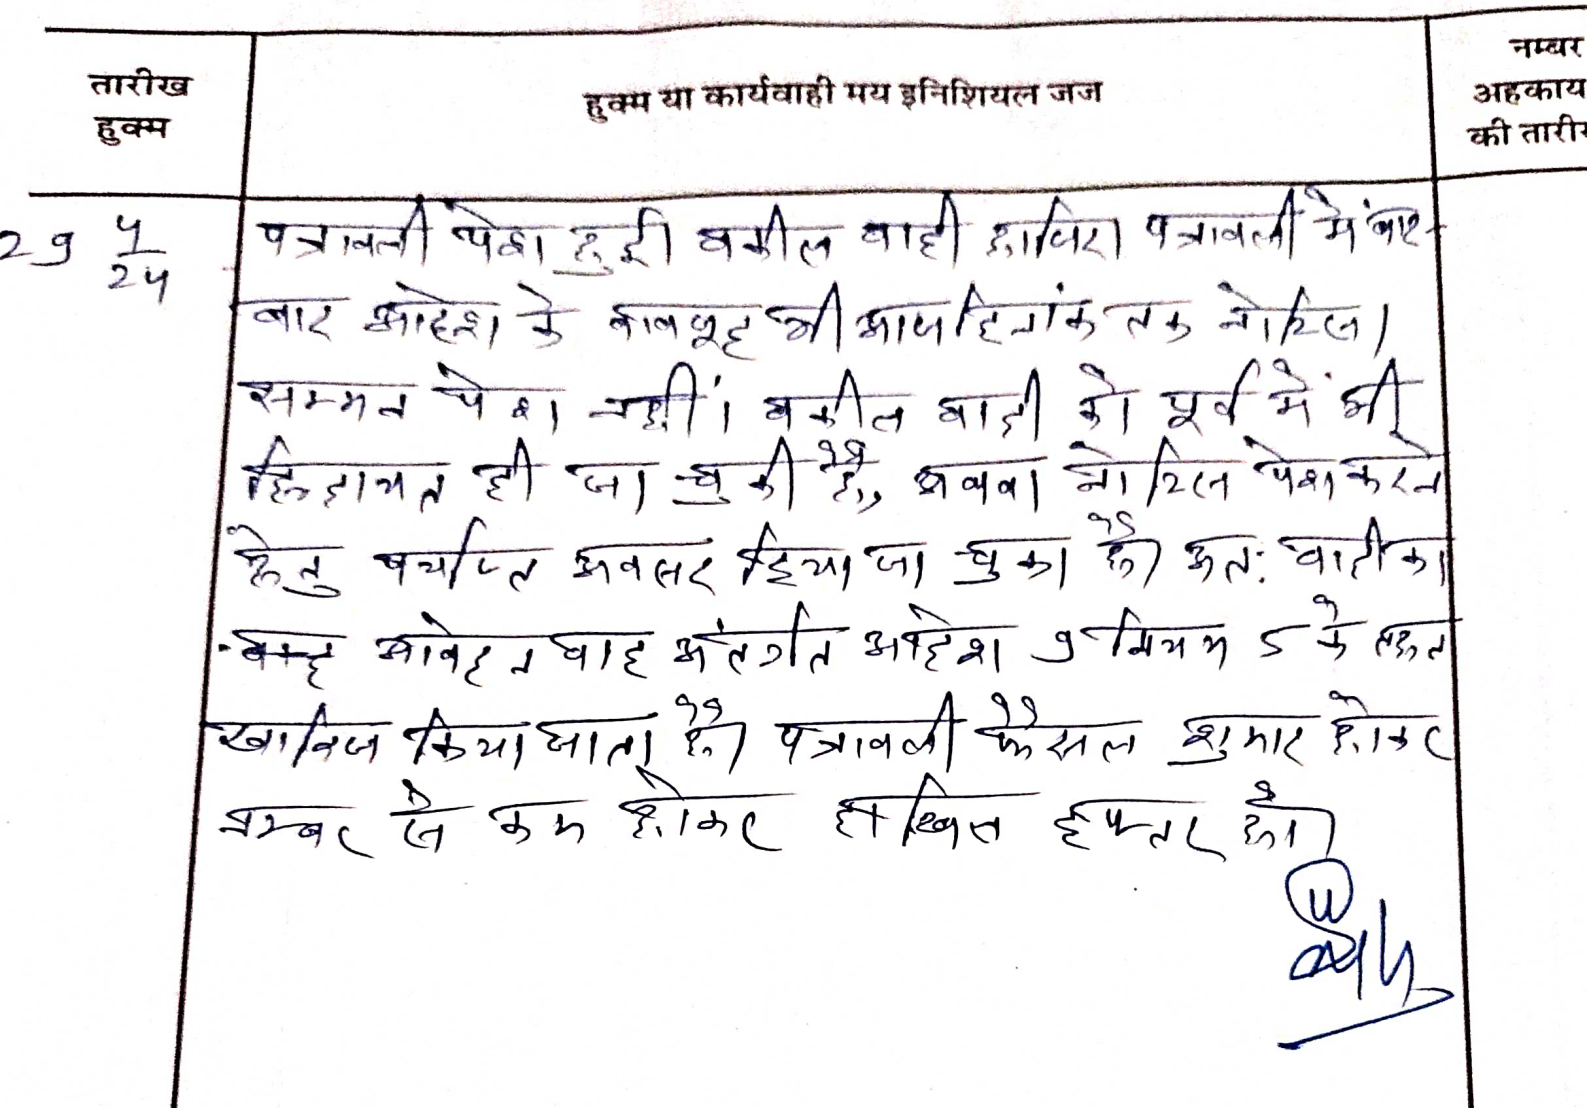 तारीख
हुक्म
हुक्म या कार्यवाही मय इनिशियल जज
नम्बर
अहकाय
की तारी
29 4/24
पत्रावली पेश हुई। वकील वादी हाजिर। पत्रावली में बार-
बार आदेश के बावजूद भी आज दिनांक तक नोटिस।
सम्मन पेश नहीं। वकील वादी को पूर्व में भी
हिदायत दी जा चुकी है, अथवा नोटिस पेश करने
हेतु पर्याप्त अवसर दिया जा चुका है। अतः वादी का
आवेदन वाद अंतर्गत आदेश 9 नियम 5 के तहत
खारिज किया जाता है। पत्रावली फैसल शुमार होकर
नम्बर से कम होकर दाखिल दफ्तर हो।